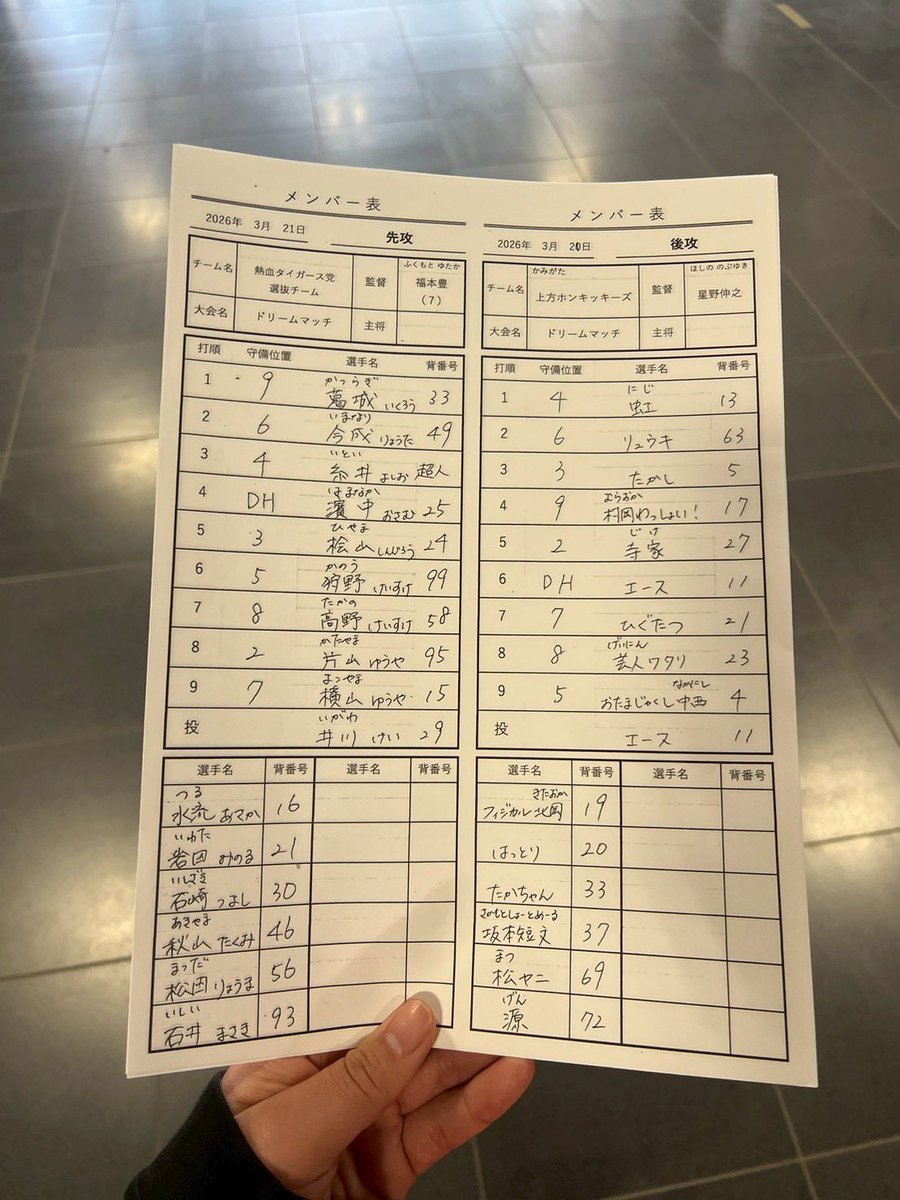 メンバー表
2026年 3月 21日 先攻
チーム名 熱血タイガース党 選抜チーム 監督 ふくもと ゆたか 福本豊 (7)
大会名 ドリームマッチ 主将
打順 守備位置 選手名 背番号
1 9 かつらぎ 葛城 いくろう 33
2 6 いまなり 今成 りょうた 49
3 4 いとい 糸井 よしお 超人
4 DH はまなか 濱中 おさむ 25
5 3 ひやま 桧山 しんじろう 24
6 5 かのう 狩野 けいすけ 99
7 8 たかの 高野 けいすけ 58
8 2 かたやま 片山 ゆうや 95
9 7 よこやま 横山 ゆうや 15
投 いがわ 井川 けい 29
選手名 背番号 選手名 背番号
つる 水流 あさか 16
いわた 岩田 みのる 21
いしざき 石崎 つよし 30
あきやま 秋山 たくみ 46
まつだ 松田 りょうま 56
いしい 石井 まさき 93
メンバー表
2026年 3月 20日 後攻
チーム名 かみがた 上方ホンキッキーズ 監督 ほしの のぶゆき 星野伸之
大会名 ドリームマッチ 主将
打順 守備位置 選手名 背番号
1 4 にじ 虹 13
2 6 リュウキ 63
3 3 たかし 5
4 9 むらおか 村岡わっしょい! 17
5 2 じけ 寺家 27
6 DH エース 11
7 7 ひぐたつ 21
8 8 げいにん 芸人ワタリ 23
9 5 なかにし おたまじゃくし中西 4
投 エース 11
選手名 背番号 選手名 背番号
きたおか フィジカル北岡 19
はっとり 20
たかちゃん 33
さかもとしょーとめーる 坂本短文 37
まつ 松ヤニ 69
げん 源 72